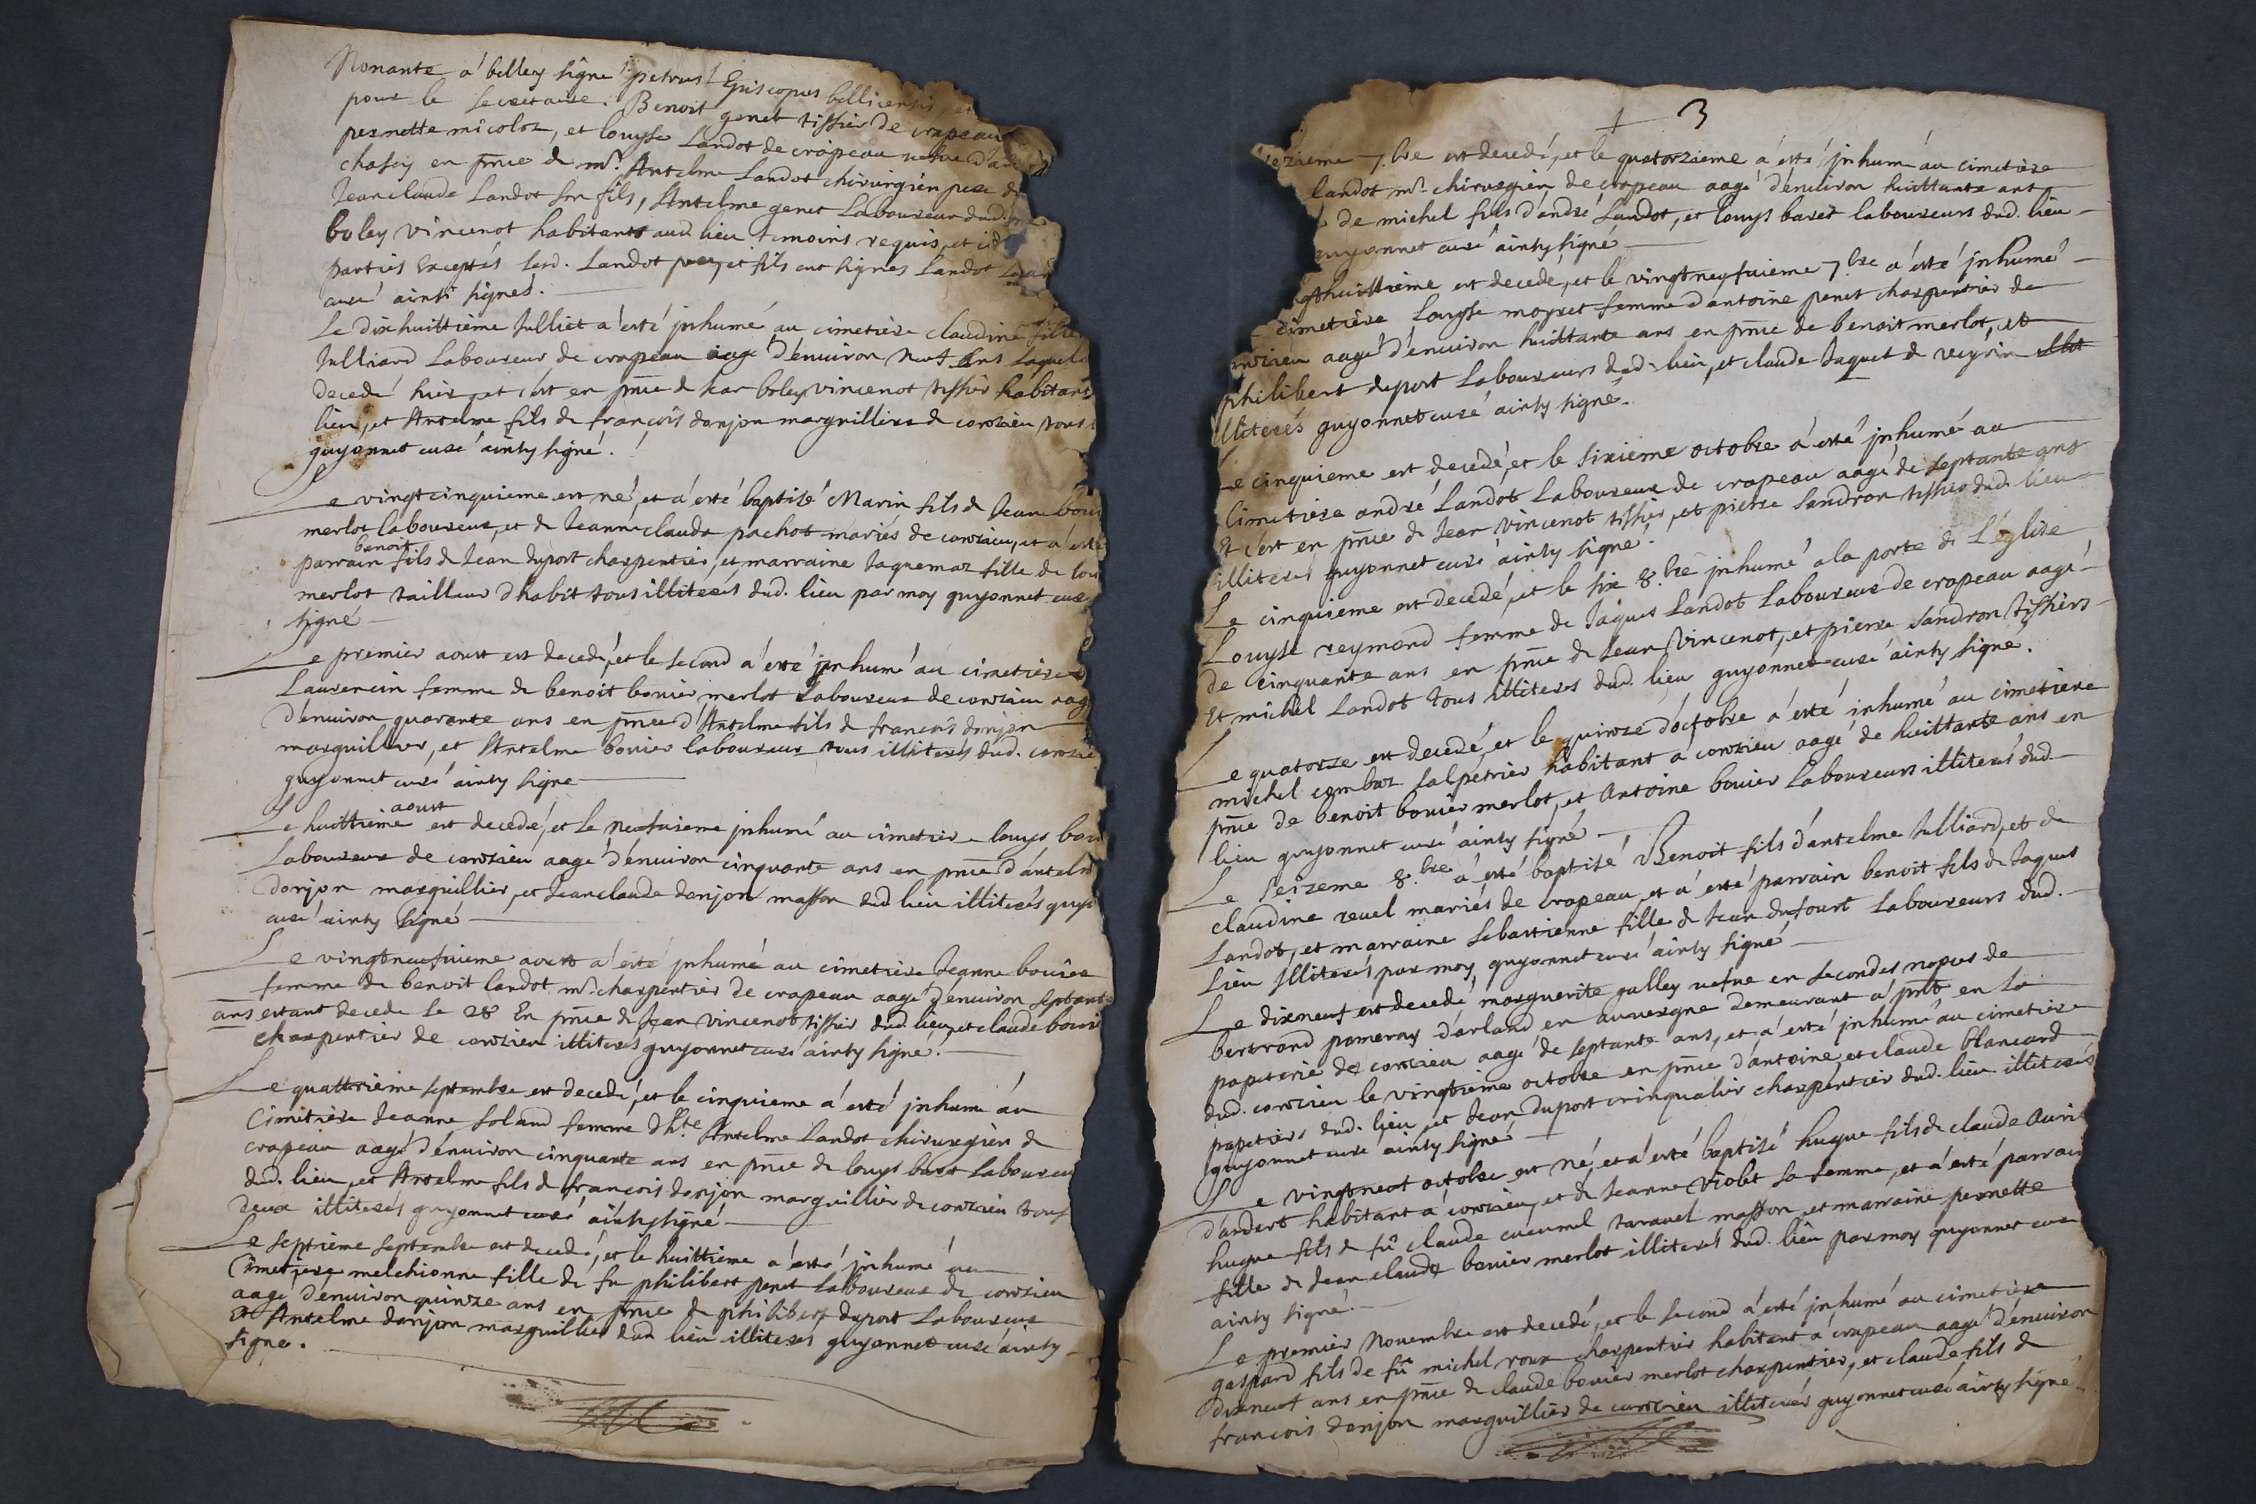 Nonante a' belley signé petrus Episcopus bellicensis, et
pour le secretaire. Benoit genet tissier de crapeau
pernette micoloz, et louyse Landot de crapeau vefve d'an
chasey en pnce de mr. Antelme Landot chirurgien pere d
Jean claude Landot son fils, Antelme genet Laboureur dud.
boley vincenot habitants aud lieu temoins requis, et
parties Exceptés lesd. Landot pere, et fils ont signes Landot
curé ainsi signes.
Le dixhuittième Julliet a' esté jnhumé au cimetière claudine fille
Julliard Laboureur de crapeau aagé d'enuiron neuf ans Laquelle
decedé hier, et c'est en pnce de Jean boley vincenot tissier habitant
lieu, et Antelme fils de françois donjon marguilliers de conzieu tous
guyonnet curé ainsy signé.
Le vingtcinquieme est né, et a' esté baptisé Marin fils de Jean boui
merlot laboureur, et de Jeanne claude pachot mariés de conzieu, et a' esté
parrain benoit fils de Jean duport charpentier, et marraine Jaquemaz fille de lou
merlot tailleur d'habit tous illiterés dud. lieu par moy guyonnet curé
signé
Le premier aoust est decedé, et le second a' esté jnhumé au cimetière
Laurencin femme de benoit bouier merlot Laboureur de conzieu aag
d'enuiron quarante ans en pnce d'Antelme fils de françois donjon
marguillier, et Antelme bouier laboureur tous illiterés dud. conzie
guyonnet curé ainsy signe
Le huittieme aoust est decedé, et le neufuieme jnhumé au cimetiere louys boui
Laboureur de conzieu aagé d'enuiron cinquante ans en pnce d'antelm
donjon marguillier, et Jeanclaude donjon masson dud lieu illiterés guyo
curé ainsy signé
Le vingtneufuieme aoust a' esté jnhumé au cimetière Jeanne bouier
femme de benoit landot mr. charpentier de crapeau aagé d'enuiron septante
ans estant decede le 28 En pnce de Jean vincenot tissier dud. lieu, et claude boui
charpentier de conzieu illiterés guyonnet curé ainsy signé.
Le quattrieme septembre est decedé, et le cinquieme a' esté jnhumé au
Cimitiere Jeanne Soland femme d'hte Antelme Landot chirurgien de
crapeau aagé d'enuiron cinquante ans en pnce de louys baret Laboureu
dud. lieu, et Antelme fils de françois donjon marguillier de conzieu tous
deux illiterés guyonnet curé ainsy signé
Le septieme septembre est decedé, et le huittieme a' esté jnhumé au
Cimetiere melchionne fille de fu philibert penet Laboureur de conzieu
aagé d'enuiron quinze ans en pnce de philibert duport Laboureur
et Antelme donjon marguillier dud lieu illiterés guyonnet curé ainsy
signé.
3
ezieme 7.bre est decedé, et le quatorzieme a' esté jnhumé au cimetière
landot mr. chirurgien de crapeau aagé d'enuiron huittante ans
de michel fils d'andré Landot, et louys baret laboureurs dud. lieu
guyonnet curé ainsy signé
gthuittieme est decede, et le vingtneufuieme 7.bre a' esté jnhumé
cimetière Louyse moyret femme d'antoine penet charpentier de
conzieu aagé d'enuiron huittante ans en pnce de benoit merlot, et
philibert duport Laboureurs dud. lieu, et claude Jaquet de veyrin
illiterés guyonnet curé ainsy signé.
Le cinquieme est decedé, et le sixieme octobre a' esté jnhumé au
Cimetiere andré Landot Laboureur de crapeau aagé de septante ans
Et c'est en pnce de Jean vincenot tissier, et pierre Sandron tissier dud. lieu
illiterés guyonnet curé ainsy signé.
Le cinquieme est decedé, et le six 8.bre jnhumé a la porte de L'église
Louyse reymond femme de Jaques Landot Laboureur de crapeau aagé
de cinquante ans en pnce de Jean vincenot, et pierre Sandron tissiers
Et michel Landot tous illiteres dud. lieu guyonnet curé ainsy signé.
Le quatorze est decedé, et le quinze d'octobre a' esté inhumé au cimetiere
michel combaz salpétrier habitant a conzieu aagé de huittante ans en
pnce de benoit bouier merlot, et Antoine bouier Laboureurs illiterés dud
lieu guyonnet curé ainsy signé
Le seizeme 8.bre a' esté baptisé Benoit fils d'antelme Julliard, et de
claudine reuel mariés de crapeau, et a' esté parrain benoit fils de Jaques
Landot, et marraine sebastienne fille de Jean dufourt Laboureurs dud.
Lieu Jlliterés par moy guyonnet curé ainsy signé
Le dixneuf est decedé marguerite galley vefue en secondes nopces de
bertrand pomeray d'arland en auuergne demeurant a' pnt en la
papeterie de conzieu aagé de septante ans, et a' esté jnhumé au cimetiere
dud. conzieu le vingtieme octobre en pnce d'antoine, et claude blancard
papetiers dud. lieu, et Jean duport crinqualier charpentier dud. lieu illiterés
guyonnet curé ainsy signé
Le vingtneuf octobre est né, et a' esté baptisé hugue fils de claude Auri
d'andert habitant a' conzieu, et de Jeanne violet sa femme, et a' esté parrai
hugue fils de fû claude cucumel tarauel masson, et marraine pernette
fille de Jean claude bouier merlot illiterés dud. lieu par moy guyonnet cure
ainsy signé.
Le premier Nouembre est decedé, et le second a' esté jnhumé au cimetiere
gaspard fils de fû michel roux charpentier habitant a' crapeau aagé d'enuiron
dixneuf ans en pnce de claude bouier merlot charpentier, et claude fils de
françois donjon marguillier de conzieu illiterés guyonnet curé ainsy signé